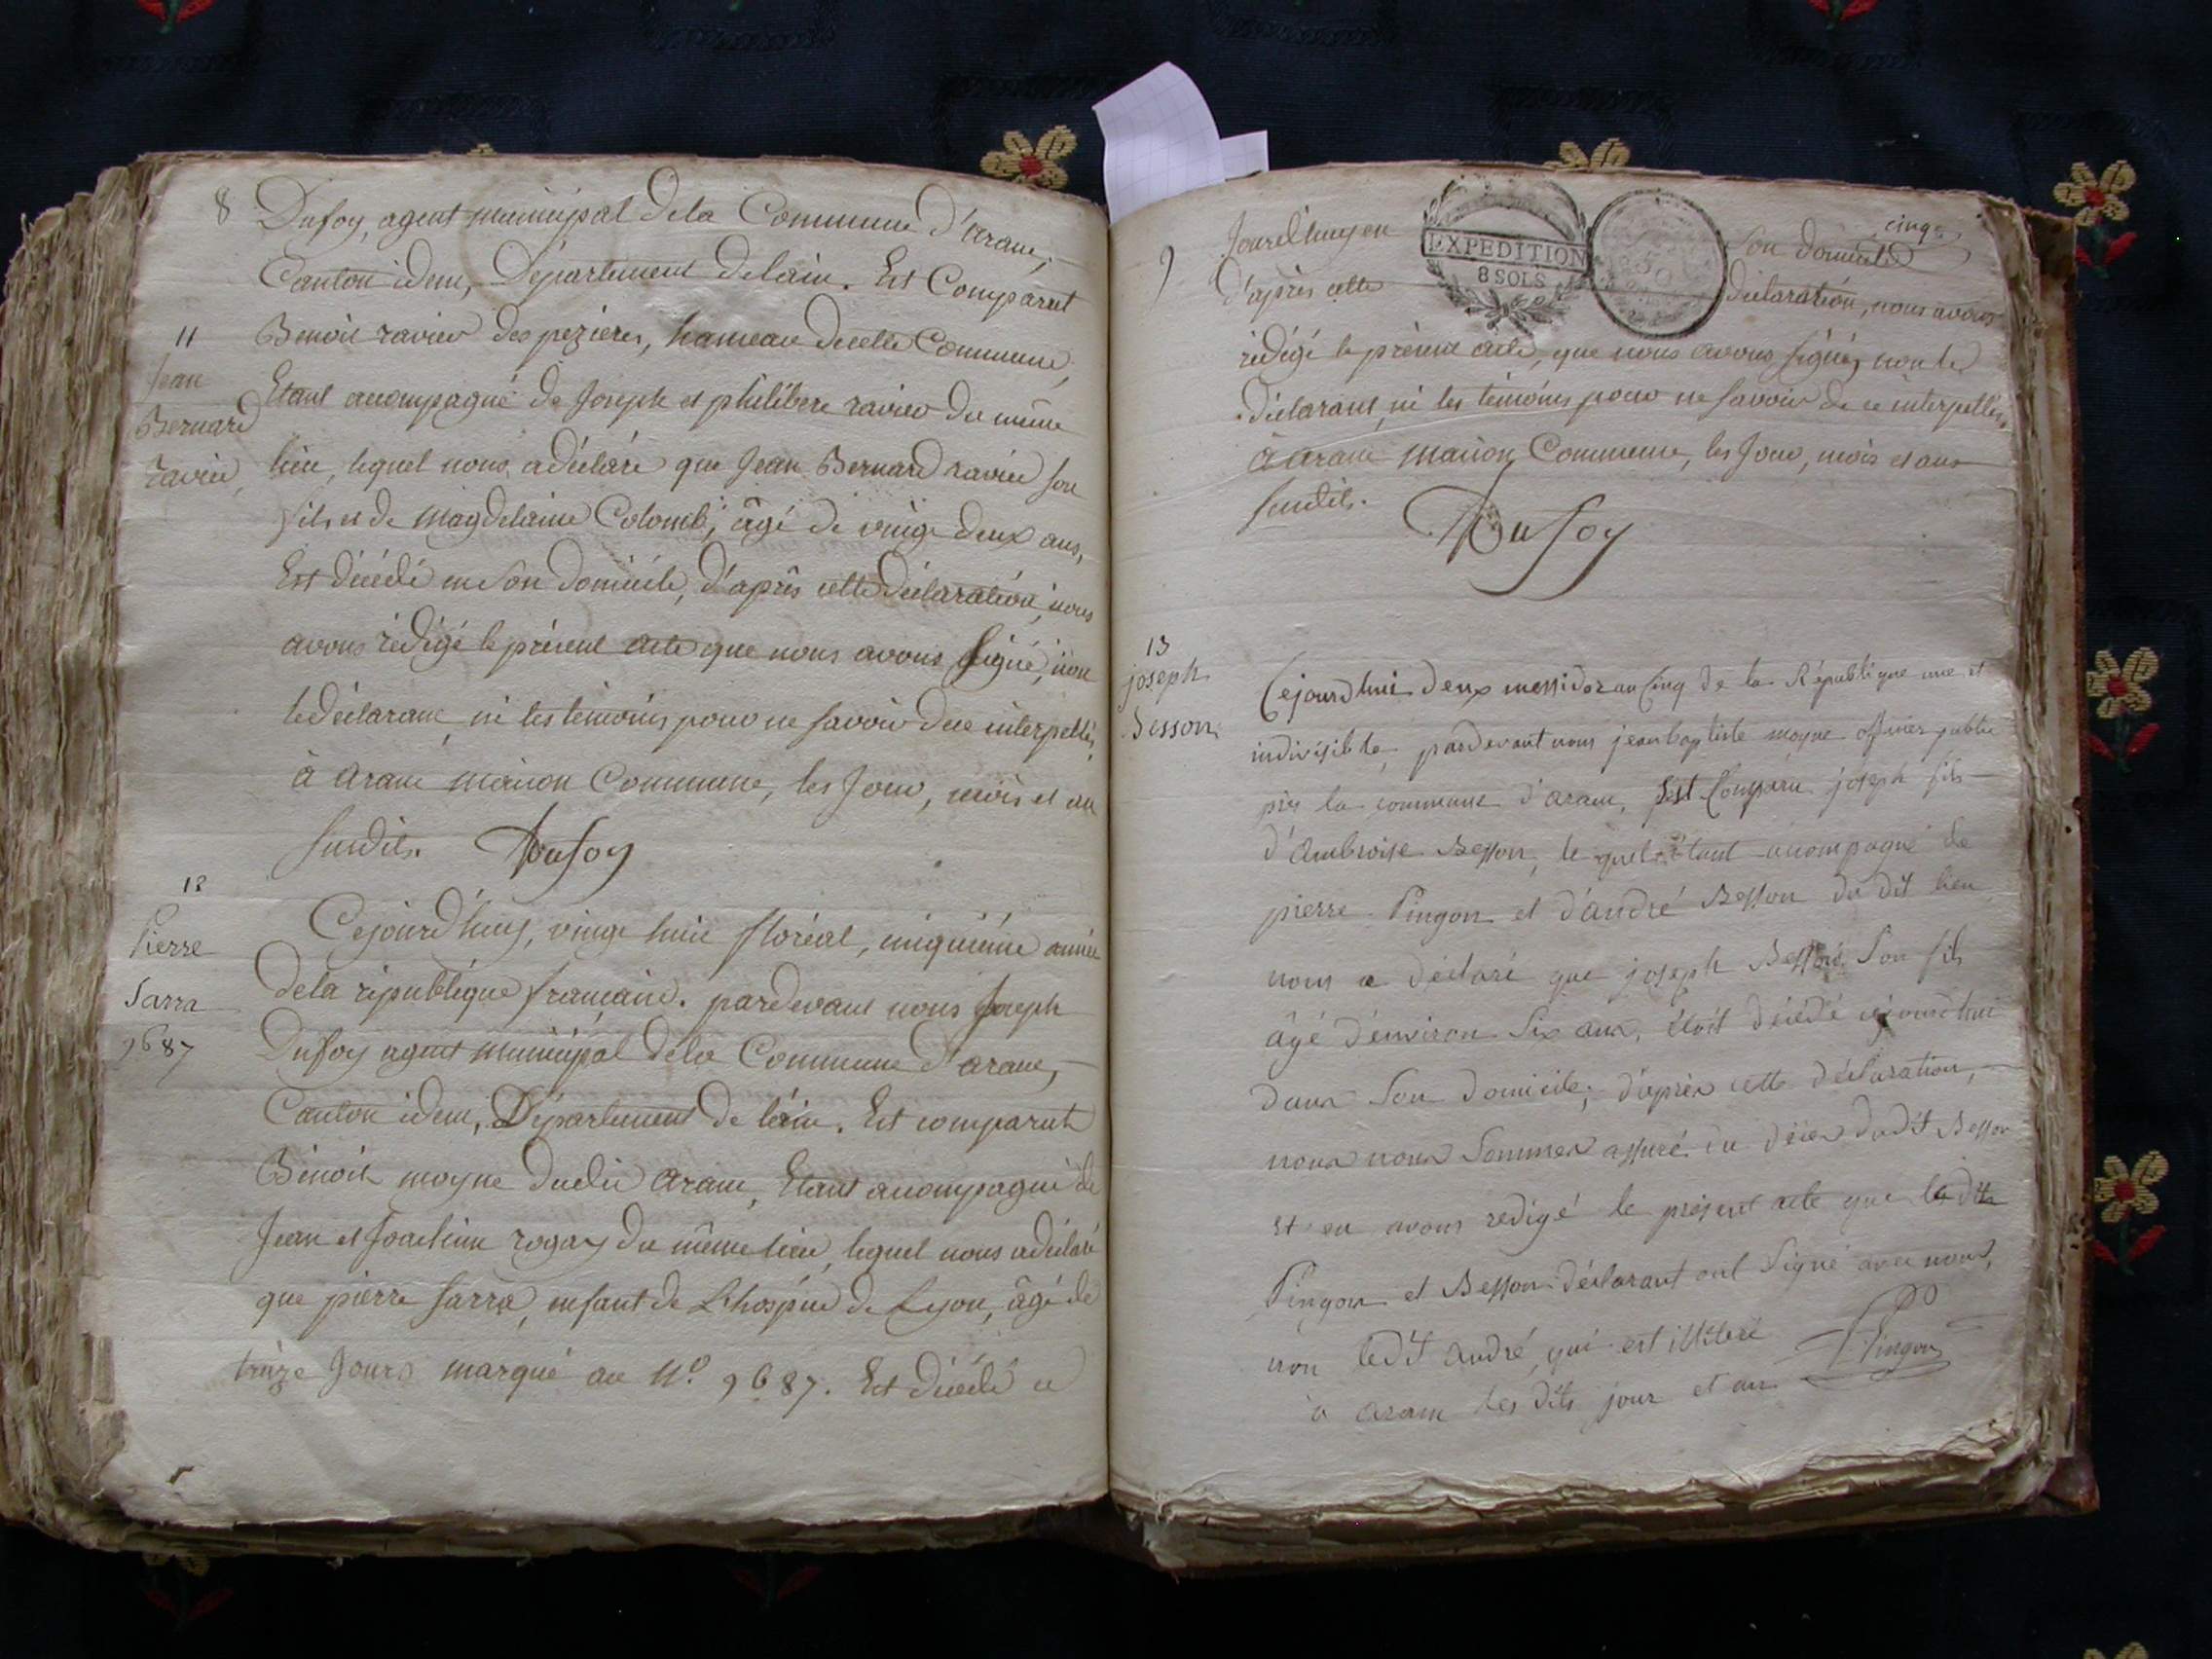 8
Dufoy, agent municipal dela Commune d'arane,
Canton idem, Département delain. Est Comparut
11
Jean
Bernard
ravier,
Benoit ravier des pezieres, hameau decelle Commune,
Etant accompagné de Joseph et philibert ravier du même
lieu, lequel nous adéclaré que Jean Bernard ravier son
fils et de Magdelaine Colomb, âgé de vingt deux ans,
Est décédé en Son domicile, d'après cette déclaration, nous
avons rédigé le présent acte que nous avons Signé, non
le déclarant, ni les témoins pour ne savoir de ce interpellés,
à arane maison Commune, les Jour, mois et an
susdits. Dufoy
12
Pierre
Sarra
9687
Cejourd'huy, vingt huit floréal, cinquième année
dela république française. pardevant nous Joseph
Dufoy agent municipal dela Commune d'arane,
Canton idem, Département de l'ain. Est comparut
Benoit moyne dudit arane, Etant accompagné de
Jean et Joachim rogay du même lieu, lequel nous adéclaré
que pierre Sarra, enfant de L'hospice de Lyon, âgé de
treize Jours marqué au N.º 9687. Est décédé ce
9
Jourd'huy en son domicile cinq
EXPEDITION
8 SOLS
d'après cette déclaration, nous avons
rédigé le présent acte, que nous avons signés, non le
déclarant, ni les témoins pour ne savoir de ce interpellés,
à arane maison Commune, les Jour, mois et ans
susdits.
Dufoy
13
joseph
Besson
Cejourdhui deux messidor an Cinq de la République une et
indivisible, pardevant nous jean baptiste moyne officier public
près la commune d'arane, Est Comparu joseph fils
d'Ambroise Besson, le quel étant accompagné de
pierre Pingon et d'andré Besson du dit lieu
nous a déclaré que joseph Besson Son fils
âgé d'environ Six ans, étoit décédé cejourdhui
dans Son domicile; d'après cette déclaration,
nous nous Sommes assuré du décès dudit Besson
et en avons redigé le présent acte que les dits
Pingon et Besson déclarant ont Signé avec nous,
non ledit andré, qui est illitéré
à arane les dits jour et an. Pingon